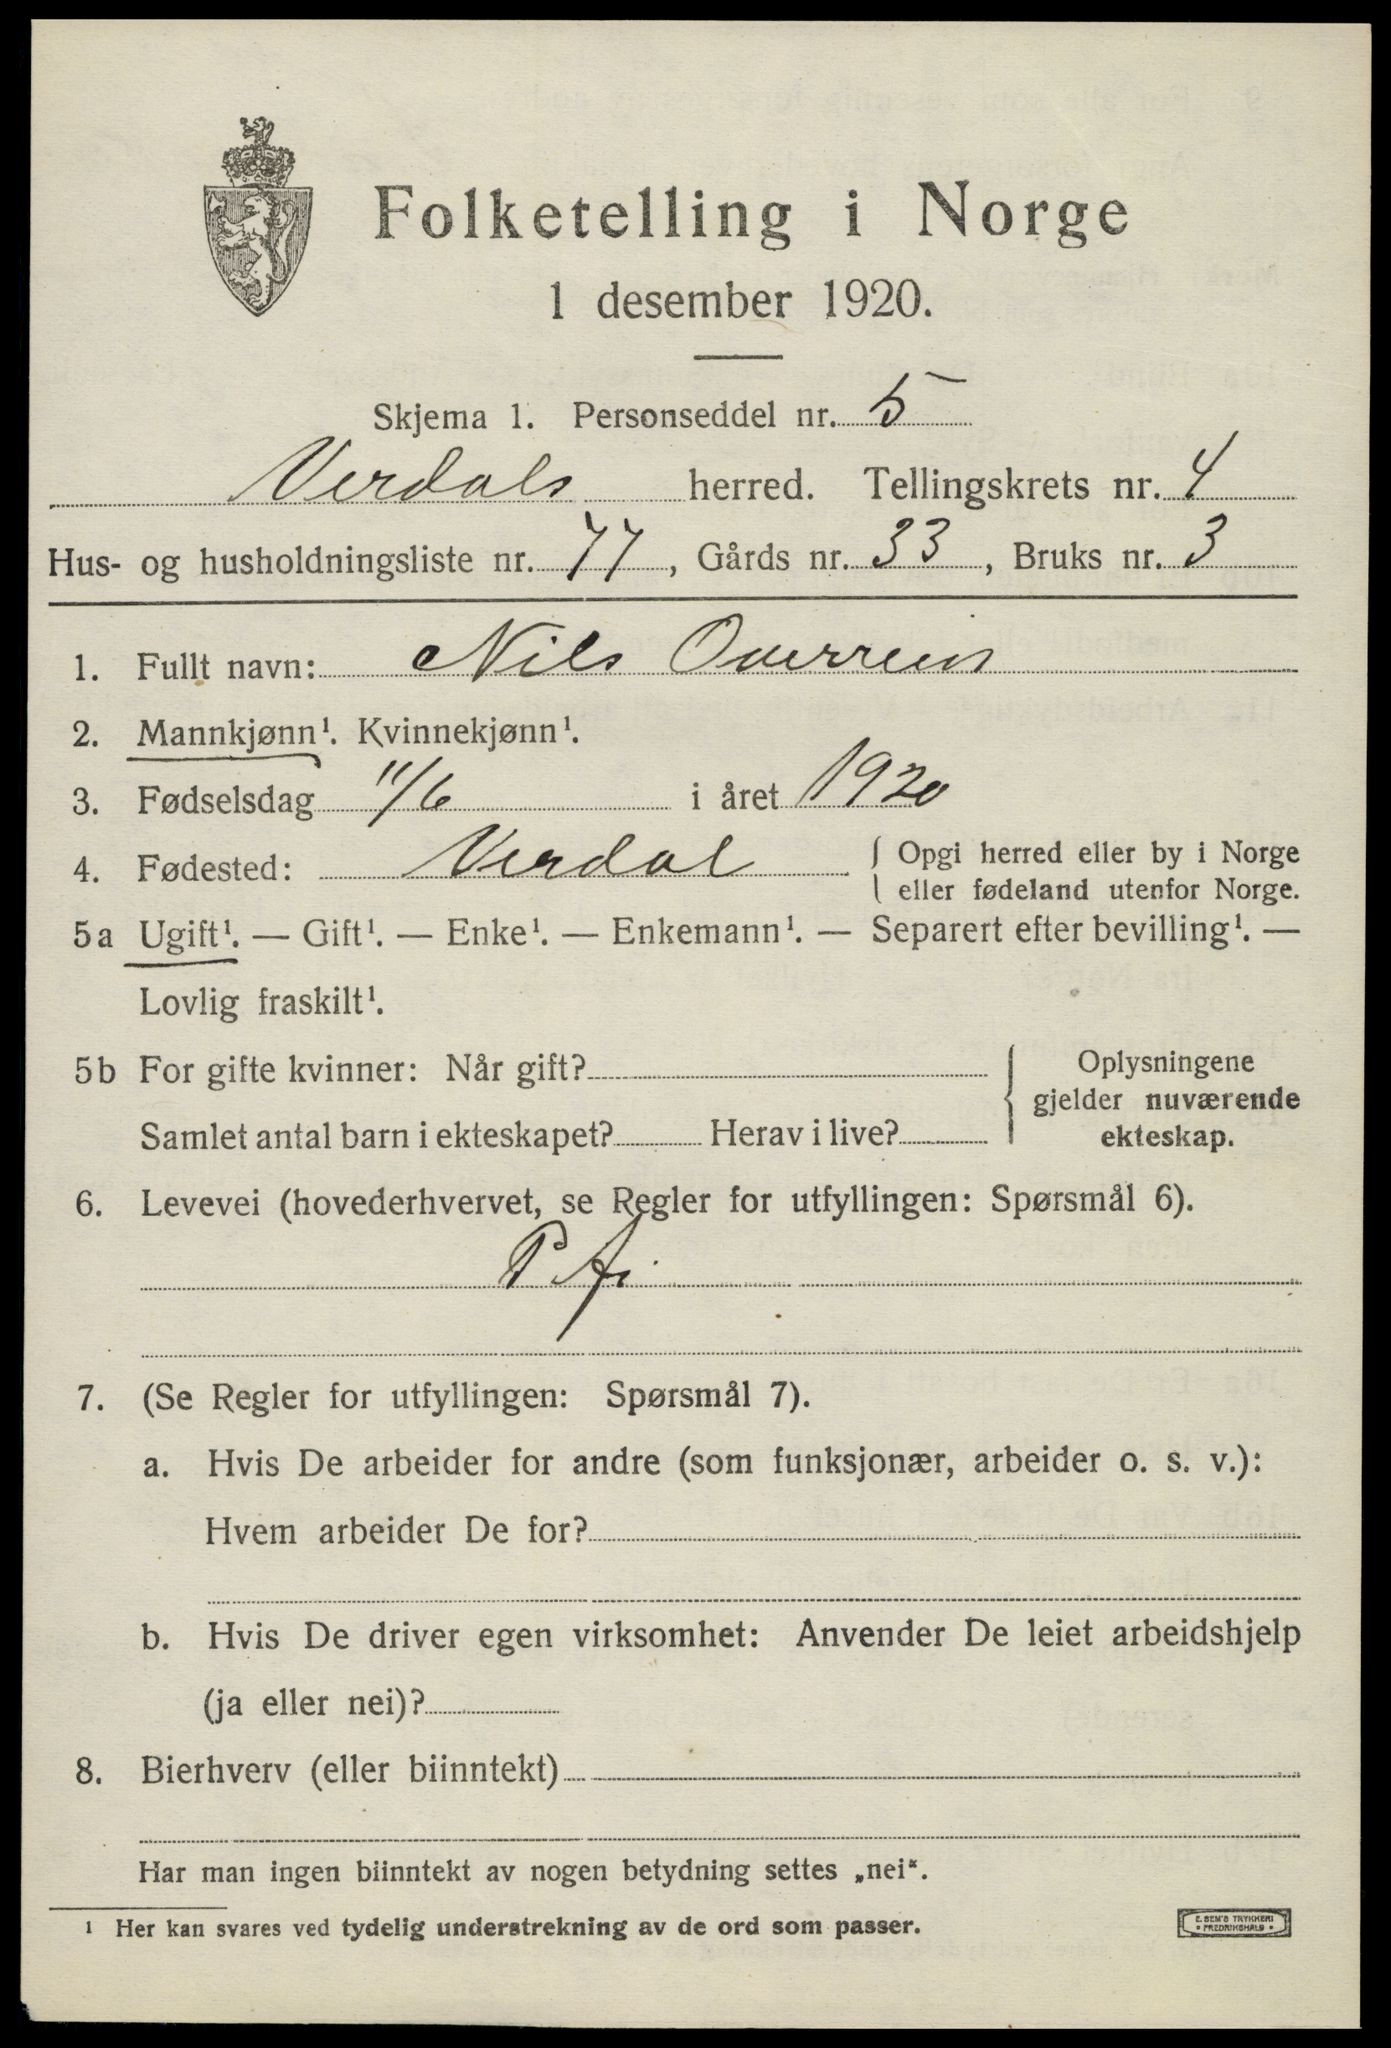 Folketelling i Norge
1 desember 1920.
Skjema 1. Personseddel nr. 5
Verdals herred. Tellingskrets nr. 4
Hus- og husholdningsliste nr. 77, Gårds nr. 33, Bruks nr. 3
1. Fullt navn: Nils Overrein
2. Mannkjønn¹. Kvinnekjønn¹.
3. Fødselsdag 11/6 i året 1920
4. Fødested: Verdal { Opgi herred eller by i Norge
eller fødeland utenfor Norge.
5a Ugift¹. — Gift¹. — Enke¹. — Enkemann¹. — Separert efter bevilling¹. —
Lovlig fraskilt¹.
5b For gifte kvinner: Når gift? { Oplysningene
gjelder nuværende
Samlet antal barn i ekteskapet? Herav i live? ekteskap.
6. Levevei (hovederhvervet, se Regler for utfyllingen: Spørsmål 6).
7. (Se Regler for utfyllingen: Spørsmål 7).
a. Hvis De arbeider for andre (som funksjonær, arbeider o. s. v.):
Hvem arbeider De for?
b. Hvis De driver egen virksomhet: Anvender De leiet arbeidshjelp
(ja eller nei)?
8. Bierhverv (eller biinntekt)
Har man ingen biinntekt av nogen betydning settes „nei“.
¹ Her kan svares ved tydelig understrekning av de ord som passer.
E. SEM'S TRYKKERI
• FREDRIKSHALD •